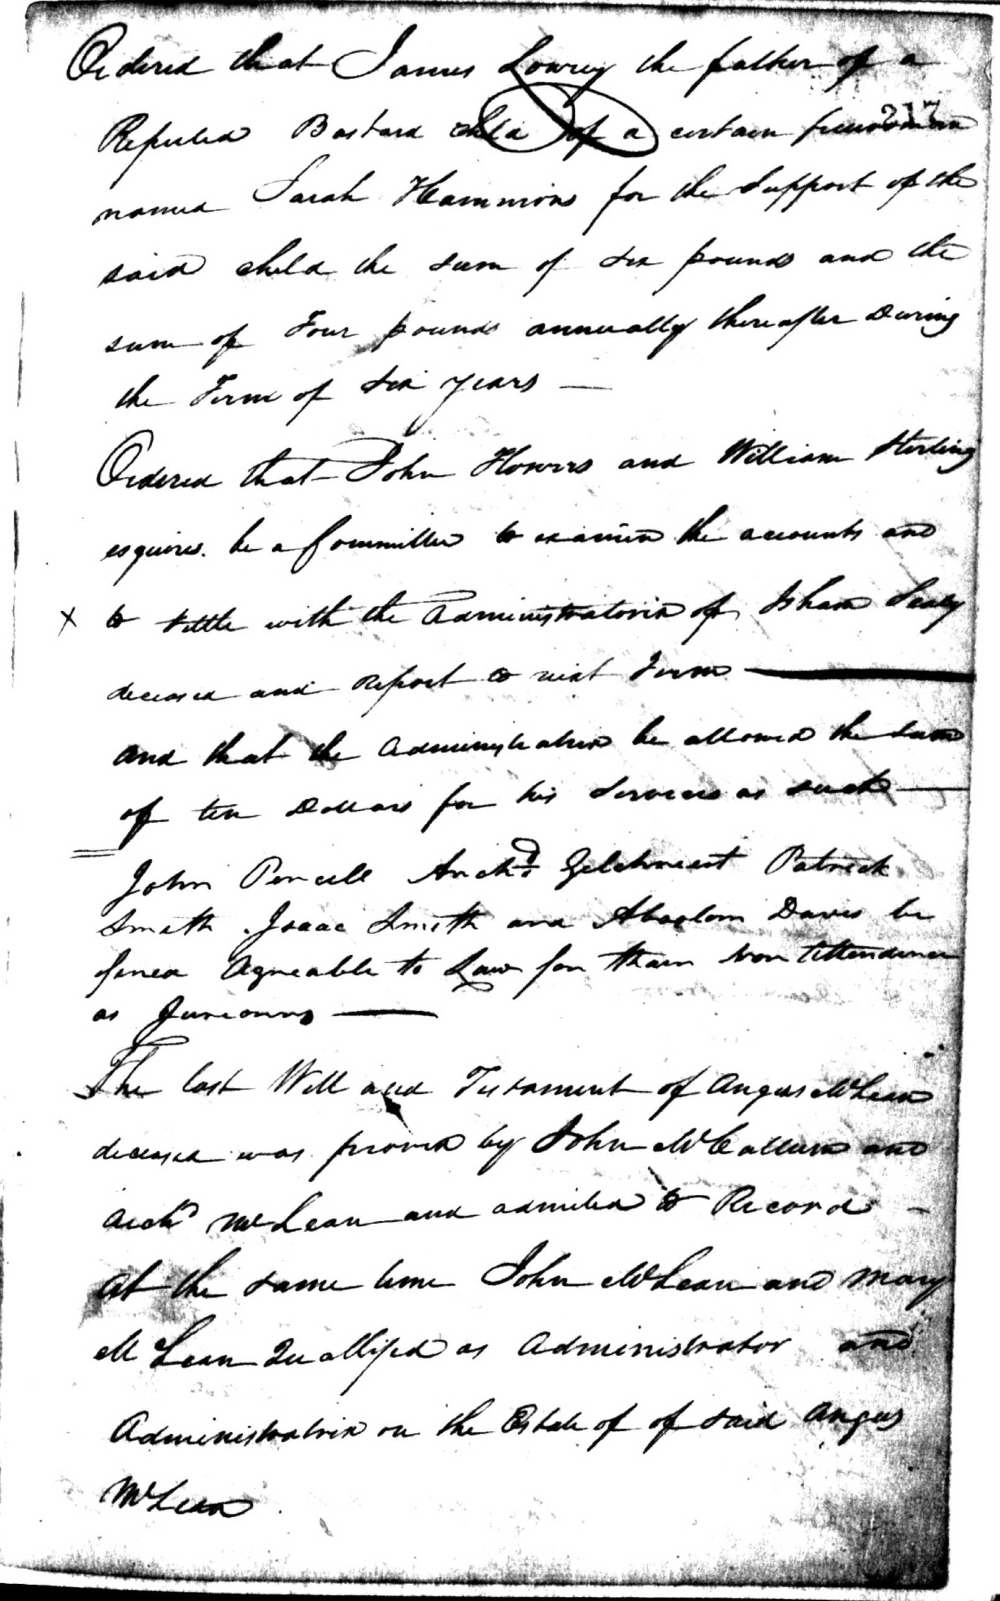 Ordered that James Lowrey the father of a
217
Reputed Bastard child of a certain freewoman
named Sarah Hammons for the Support of the
said child the sum of six pounds and the
sum of Four pounds annually thereafter During
the Term of six years —
Ordered that John Howers and William Sterling
esquires. be a Committee to examin the accounts and
x to settle with the Administratorix of Isham Sealy
deceased and Report to next Term —
and that the Administratrix be allowed the sum
of ten Dollars for his services as such —
John Percell Archd Gelchreest Patrick
Smith Isaac Smith and Absolom Davis be
fined Agreable to Law for thair Non Attendence
as Jureours —
The last Will and Testament of Angus McLean
deceased was proven by John McCallum and
Archd McLean and admited to Record —
At the same time John McLean and Mary
McLean Quallified as Administrator and
Administratrix on the Estate of of said Angus
McLean